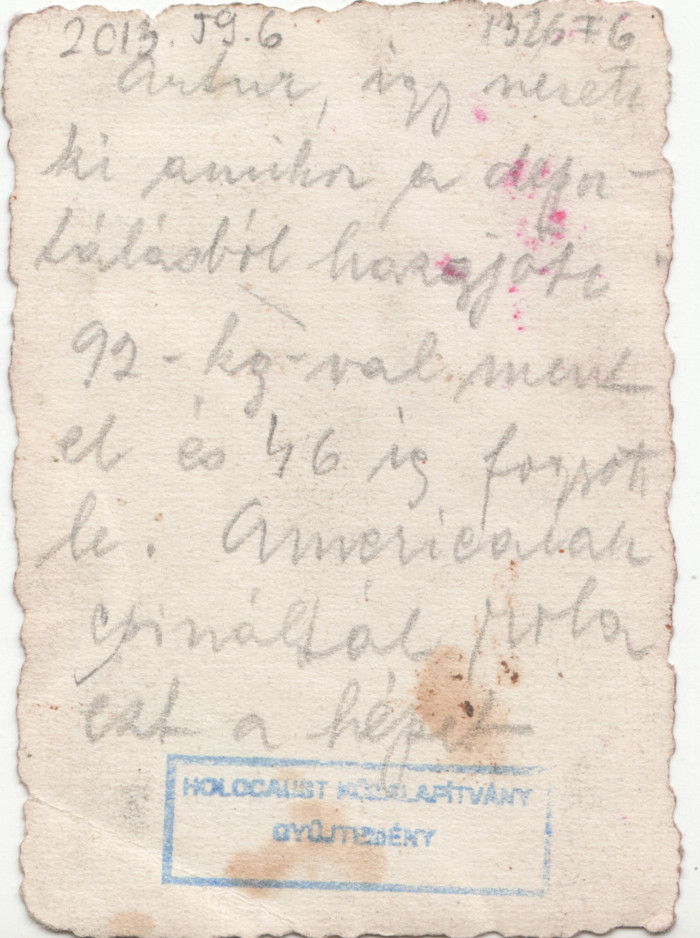 2013. 59. 6 132676
Artur, így nézett
ki amikor a depor-
tálásból hazajött
92-kg-val ment
el és 46 ig fogyott
le. Americaiak
csináltál róla
ezt a képet
HOLOCAUST KÖZALAPÍTVÁNY
GYŰJTEMÉNY